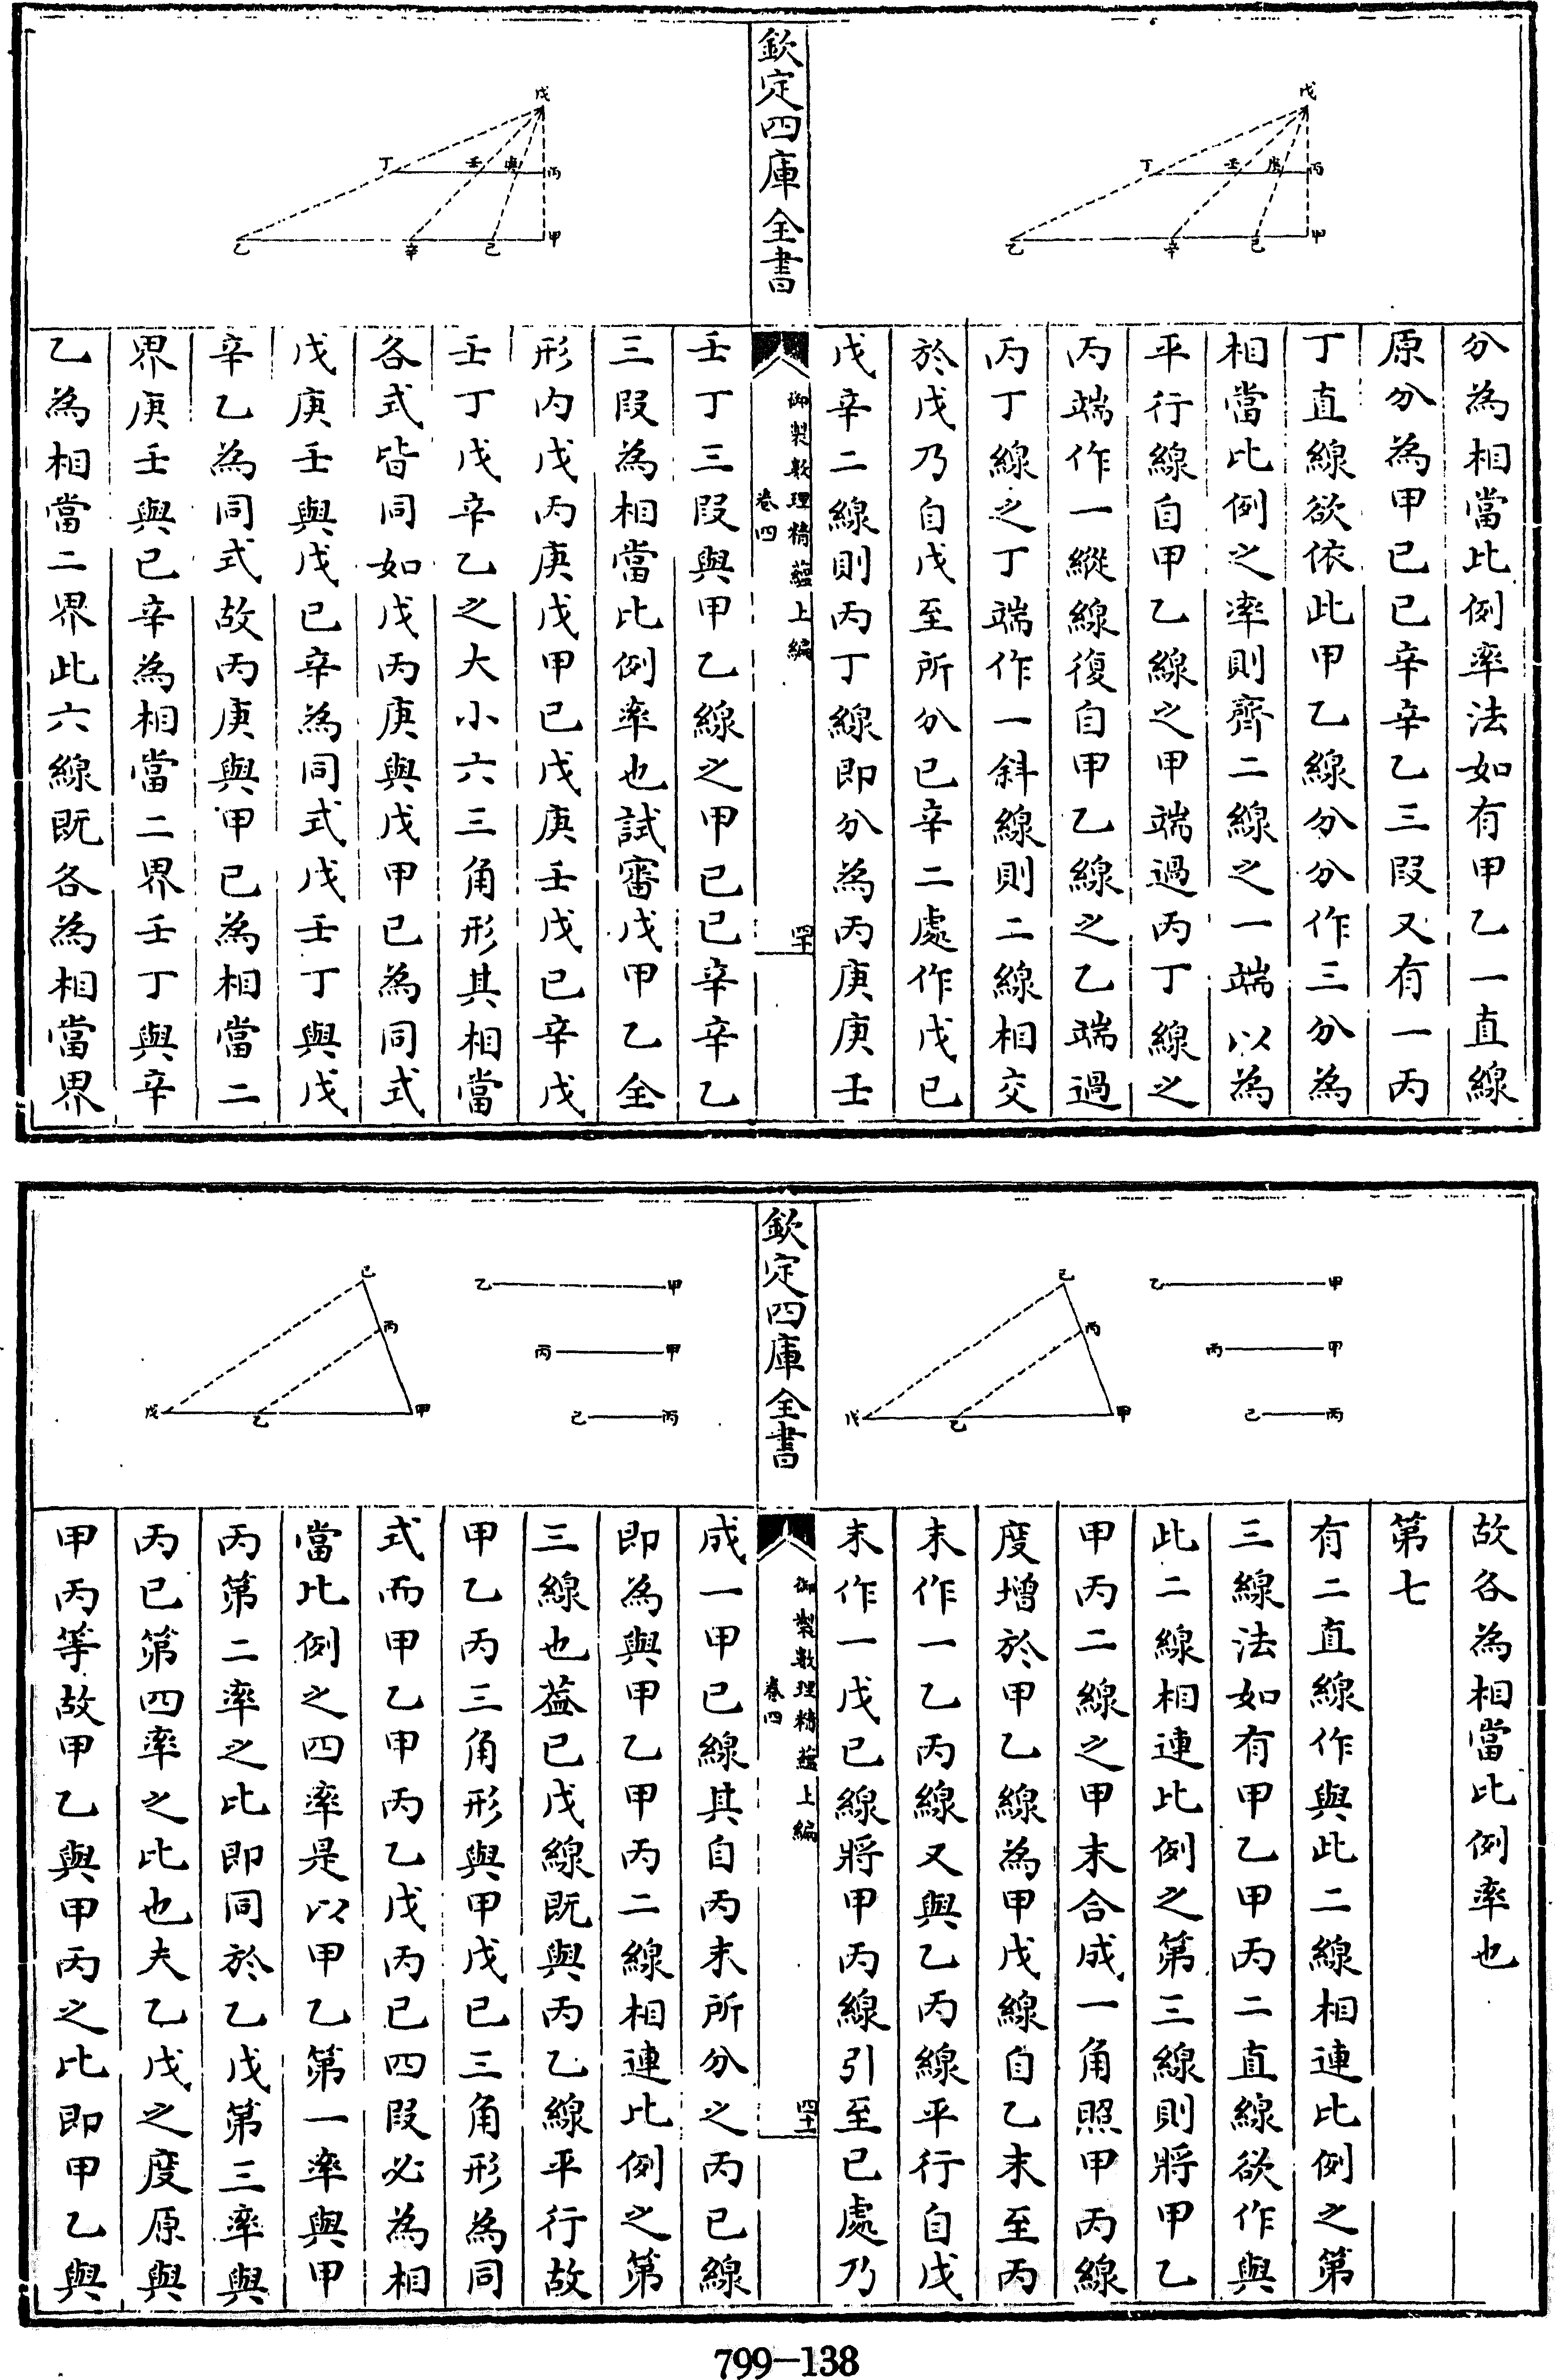 分為相當比例率法如有甲乙一直線
原分為甲已已辛辛乙三段又有一丙
丁直線欲依此甲乙線分分作三分為
相當比例之率則齊二線之一端以為
平行線自甲乙線之甲端過丙丁線之
丙端作一縱線復自甲乙線之乙端過
丙丁線之丁端作一斜線則二線相交
於戊乃自戊至所分已辛二處作戊已
戊辛二線則丙丁線即分為丙庚庚壬
戊
丁 壬 庚 丙
乙 辛 己 甲
欽定四庫全書
御製數理精藴上編
卷四
四十
壬丁三段與甲乙線之甲已已辛辛乙
三段為相當比例率也試審戊甲乙全
形內戊丙庚戊甲已戊庚壬戊已辛戊
壬丁戊辛乙之大小六三角形其相當
各式皆同如戊丙庚與戊甲已為同式
戊庚壬與戊已辛為同式戊壬丁與戊
辛乙為同式故丙庚與甲已為相當二
界庚壬與已辛為相當二界壬丁與辛
乙為相當二界此六線既各為相當界
戊
丁 壬 庚 丙
乙 辛 己 甲
故各為相當比例率也
第七
有二直線作與此二線相連比例之第
三線法如有甲乙甲丙二直線欲作與
此二線相連比例之第三線則將甲乙
甲丙二線之甲末合成一角照甲丙線
度增於甲乙線為甲戊線自乙末至丙
末作一乙丙線又與乙丙線平行自戊
末作一戊已線將甲丙線引至已處乃
乙 甲
丙 甲
己 丙
己
丙
戊 乙 甲
欽定四庫全書
御製數理精藴上編
卷四
四十一
成一甲已線其自丙末所分之丙已線
即為與甲乙甲丙二線相連比例之第
三線也葢已戊線既與丙乙線平行故
甲乙丙三角形與甲戊已三角形為同
式而甲乙甲丙乙戊丙已四段必為相
當比例之四率是以甲乙第一率與甲
丙第二率之比即同於乙戊第三率與
丙已第四率之比也夫乙戊之度原與
甲丙等故甲乙與甲丙之比即甲乙與
乙 甲
丙 甲
己 丙
己
丙
戊 乙 甲
799-138